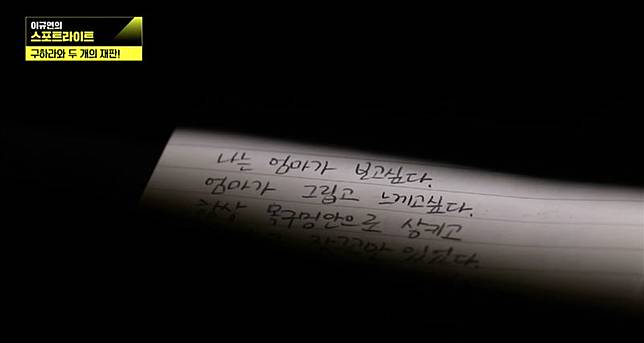 이규연의
스포트라이트
구하라와 두 개의 재판!
나는 엄마가 보고싶다.
엄마가 그립고 느끼고싶다.
항상 목구멍안으로 삼키고
참고만 있었다.